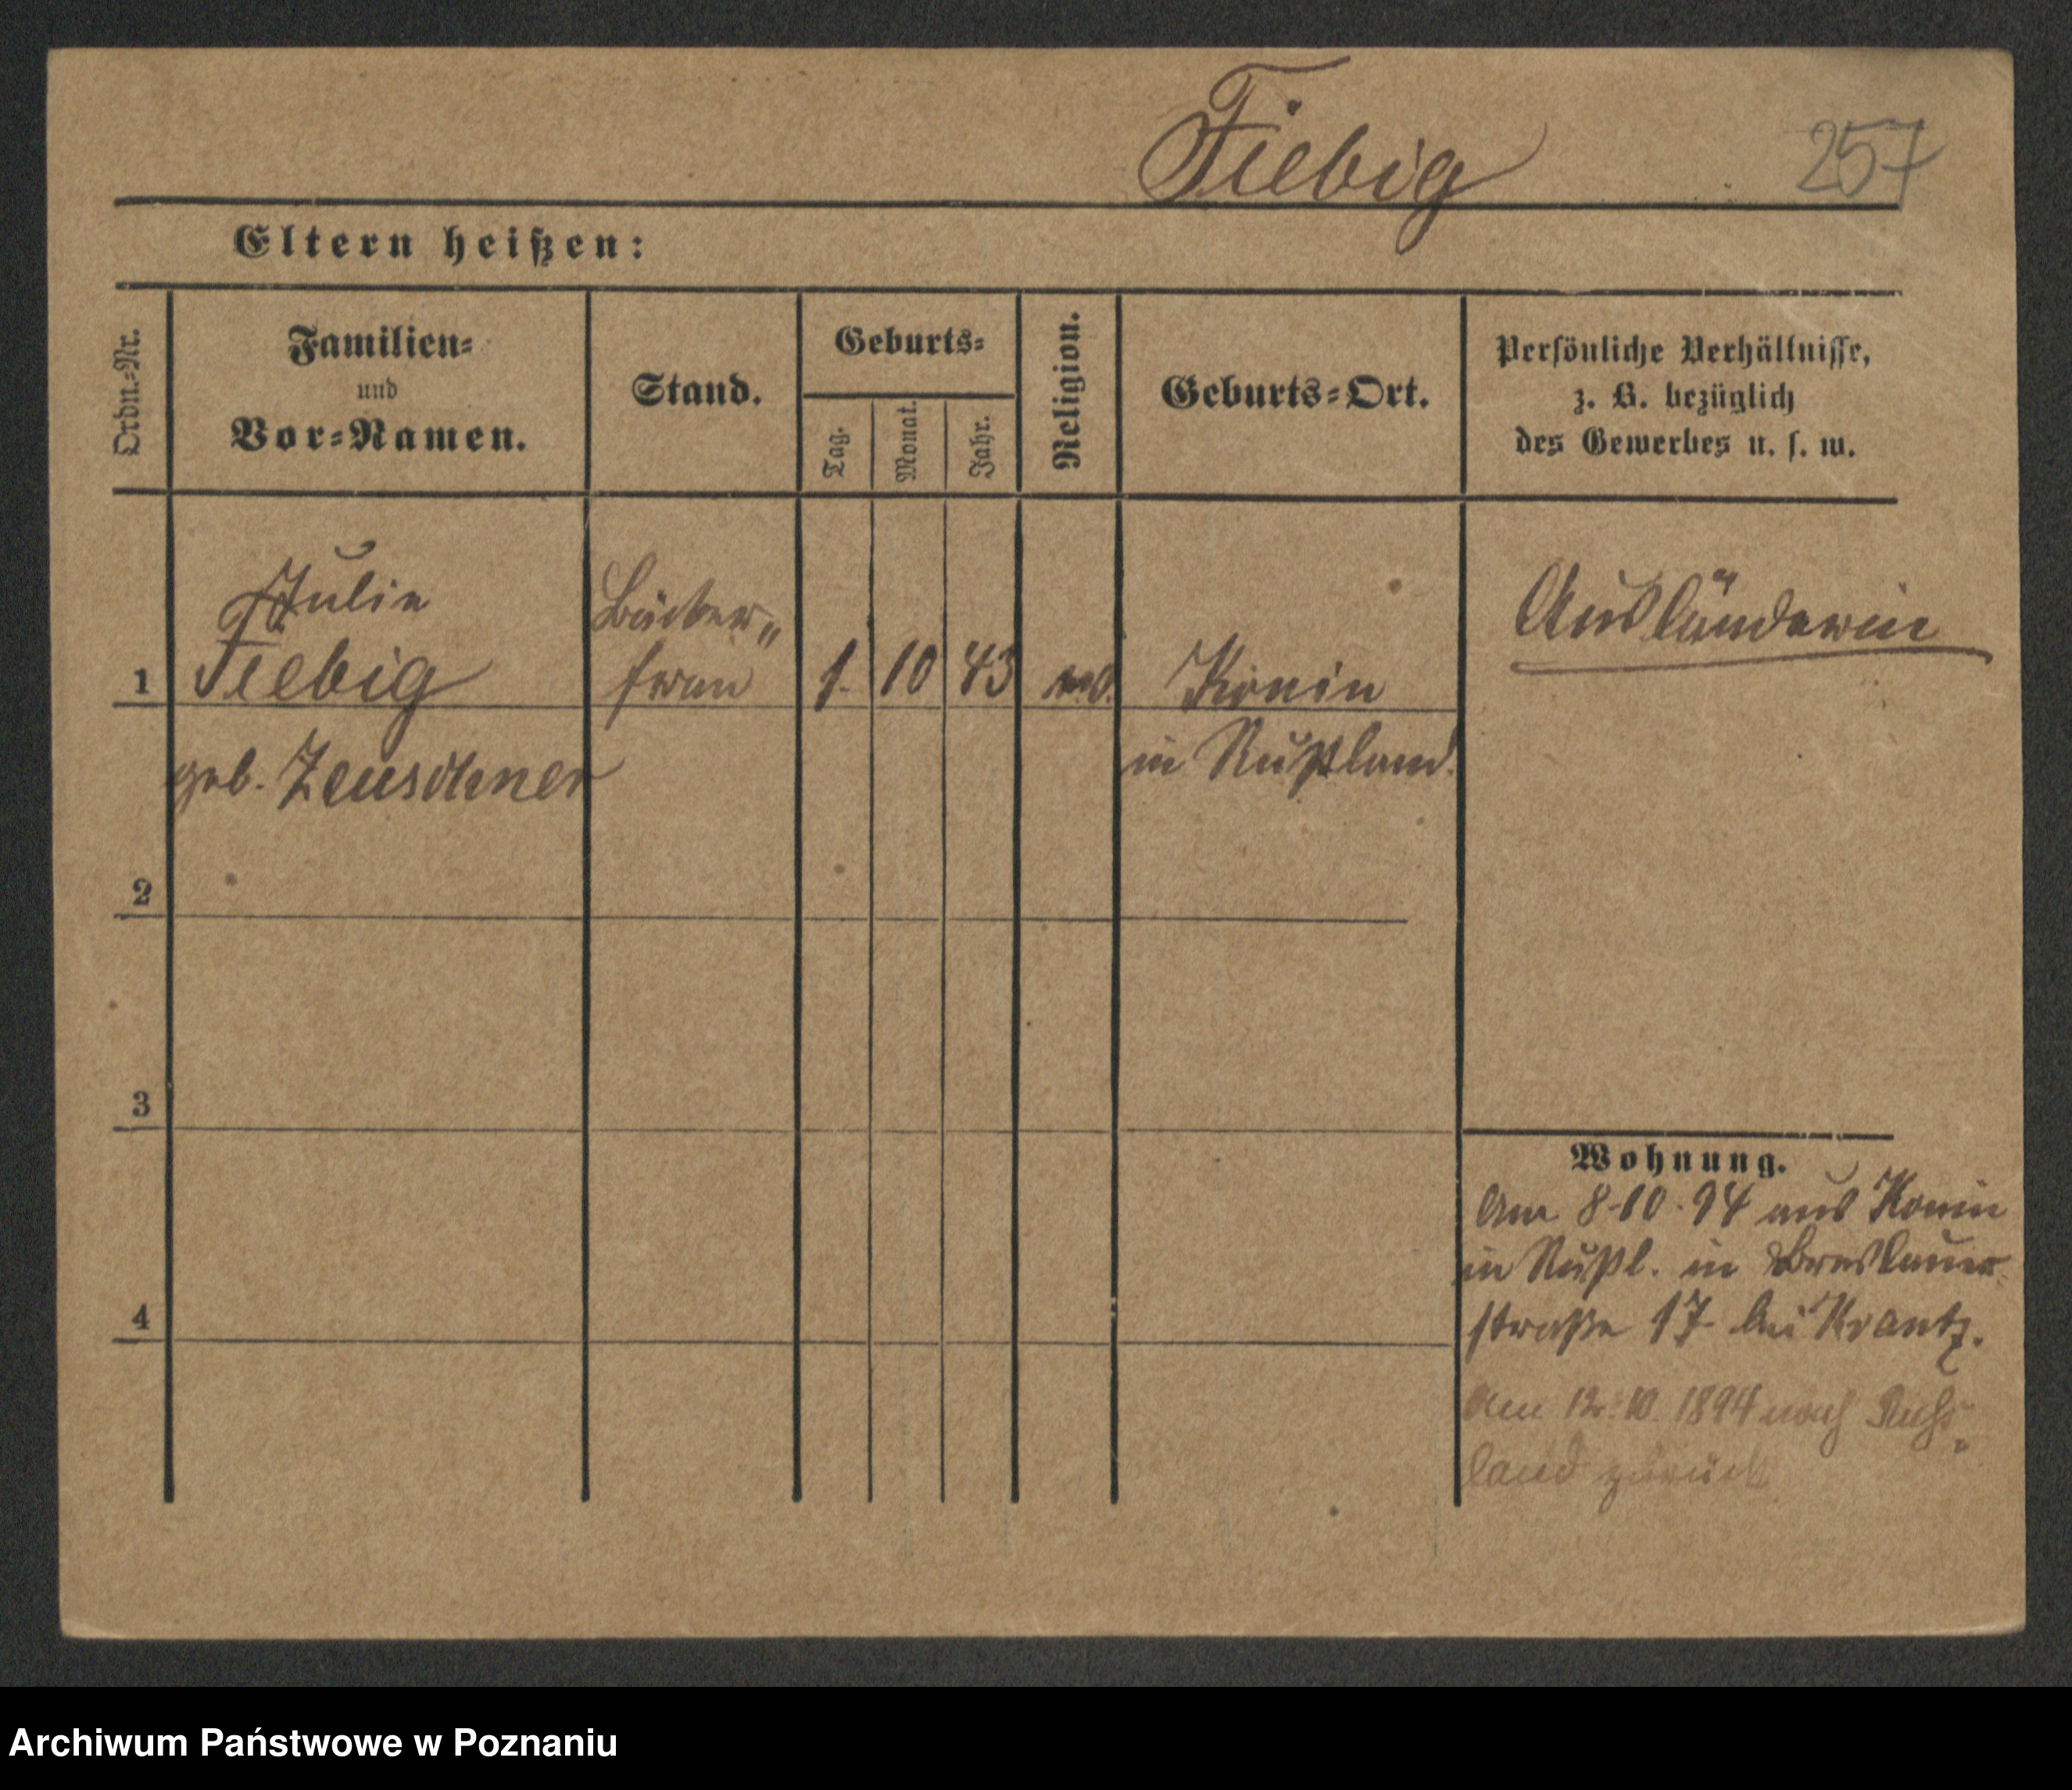 Fiebig
257
Eltern heißen:
Ordn.-Nr.
Familien-
und
Vor-Namen.
Stand.
Geburts-
Tag.
Monat.
Jahr.
Religion.
Geburts-Ort.
Persönliche Verhältnisse,
z. B. bezüglich
des Gewerbes u. s. w.
Julie
Fiebig
geb. Zeuschner
Bäcker„
frau
1.
10
43
Konin
in Rußland.
Ausländerin
1
2
3
4
Wohnung.
Am 8.10.94 aus Konin
in Rußl. in Breslauer-
straße 17 bei Krantz.
Am 12.10.1894 nach Ruß„
land zurück
Archiwum Państwowe w Poznaniu